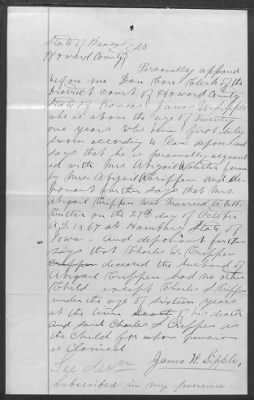 State of Kansas } SS
Howard County }
Personally appeared
before me Clerk of the
District court of Howard County
State of Kansas James W. Sipple
who is above the age of twenty
one years who being first duly
sworn according to law deposes and
says that he is personaly acquaint
ed with Mrs Abigail formerly
Mrs Abigail Crippen and de
ponant further says that Mrs.
Abigail Crippen was married to
Butler on the 29th day of October
A.D. 1867 at Hamburg State of
Iowa. And deponant further
says that Charles W. Crippen
deceased the husband of
Abigail Crippen had no other
Child except Charles S Crippen
under the age of sixteen years
at the time of his death
and said Charles S Crippen is
the Child for whom pension
is claimed
James W. Sipple,
Subscribed in my presence